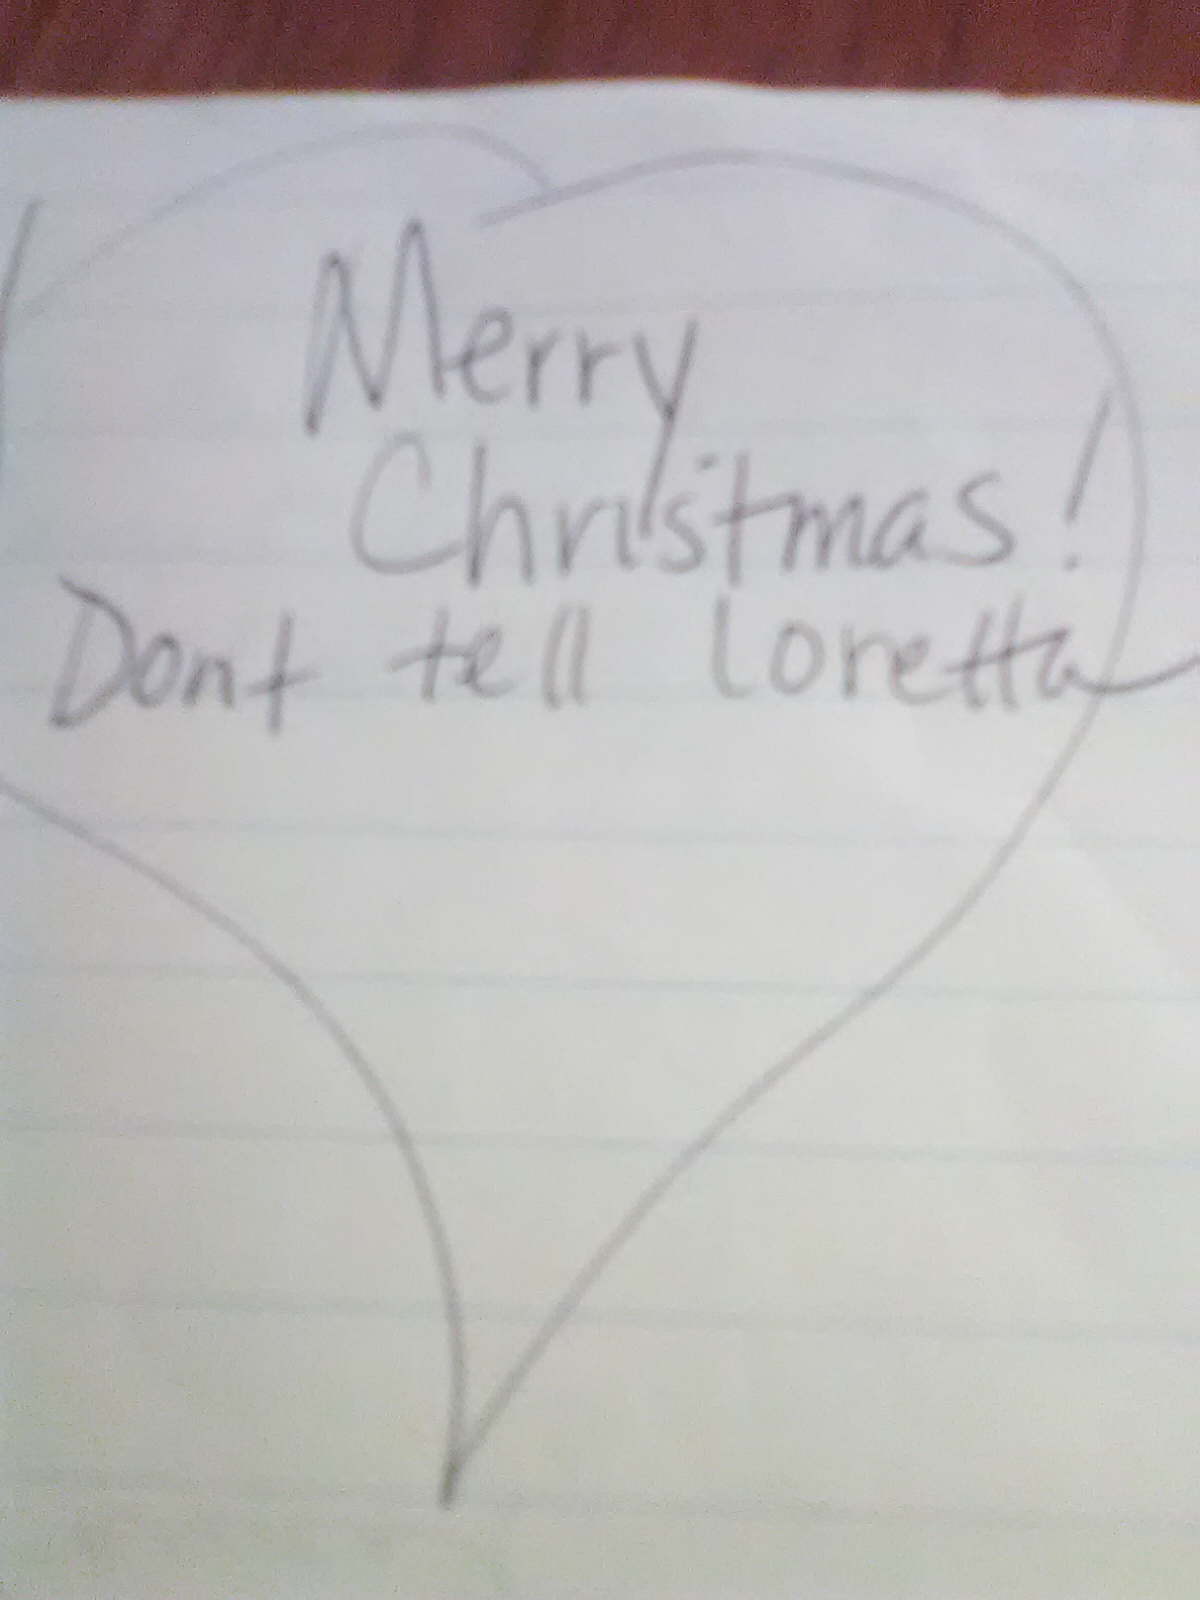 Merry
Christmas!
Dont tell loretta